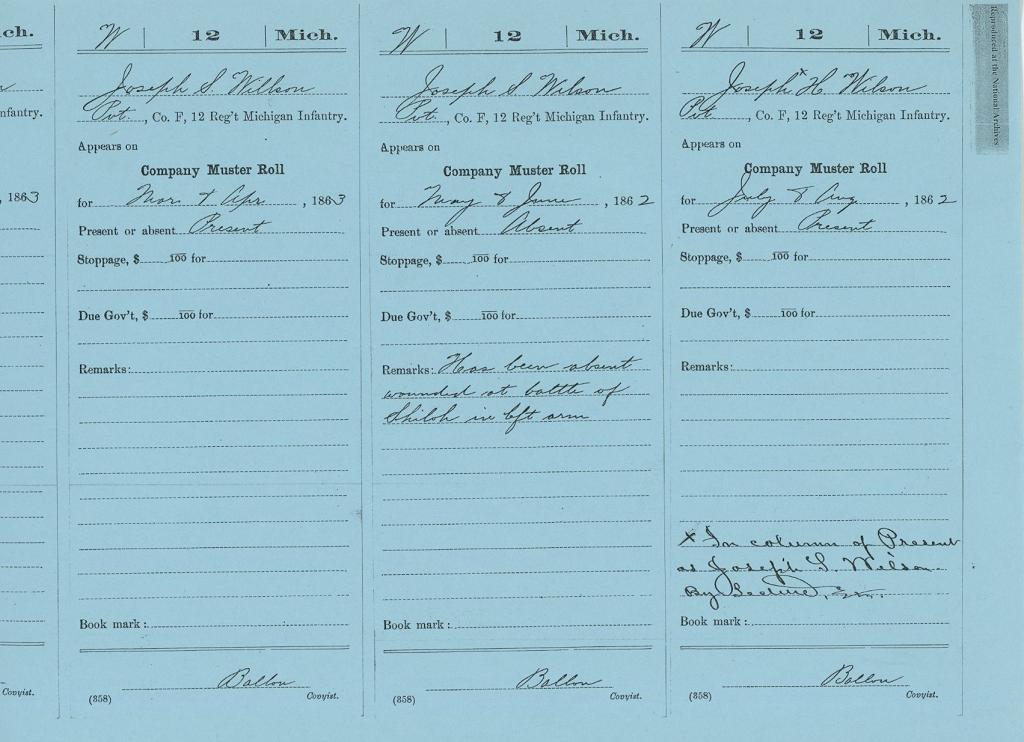 ch.
nfantry.
, 1863
Copyist.
W | 12 | Mich.
Joseph S. Willson
Pvt., Co. F, 12 Reg't Michigan Infantry.
Appears on
Company Muster Roll
for Mar & Apr, 1863
Present or absent Present
Stoppage, $ 100 for
Due Gov't, $ 100 for
Remarks:
Book mark:
Ballou
(358) Copyist.
W | 12 | Mich.
Joseph S Wilson
Pvt., Co. F, 12 Reg't Michigan Infantry.
Appears on
Company Muster Roll
for May & June, 1862
Present or absent Absent
Stoppage, $ 100 for
Due Gov't, $ 100 for
Remarks: Has been absent
wounded at battle of
Shiloh in left arm
Book mark:
Ballou
(358) Copyist.
W | 12 | Mich.
Joseph x H. Wilson
Pvt, Co. F, 12 Reg't Michigan Infantry.
Appears on
Company Muster Roll
for July & Aug, 1862
Present or absent Present
Stoppage, $ 100 for
Due Gov't, $ 100 for
Remarks:
x In column of Present
as Joseph S. Wilson
By
Book mark:
Ballou
(358) Copyist.
Reproduced at the National Archives